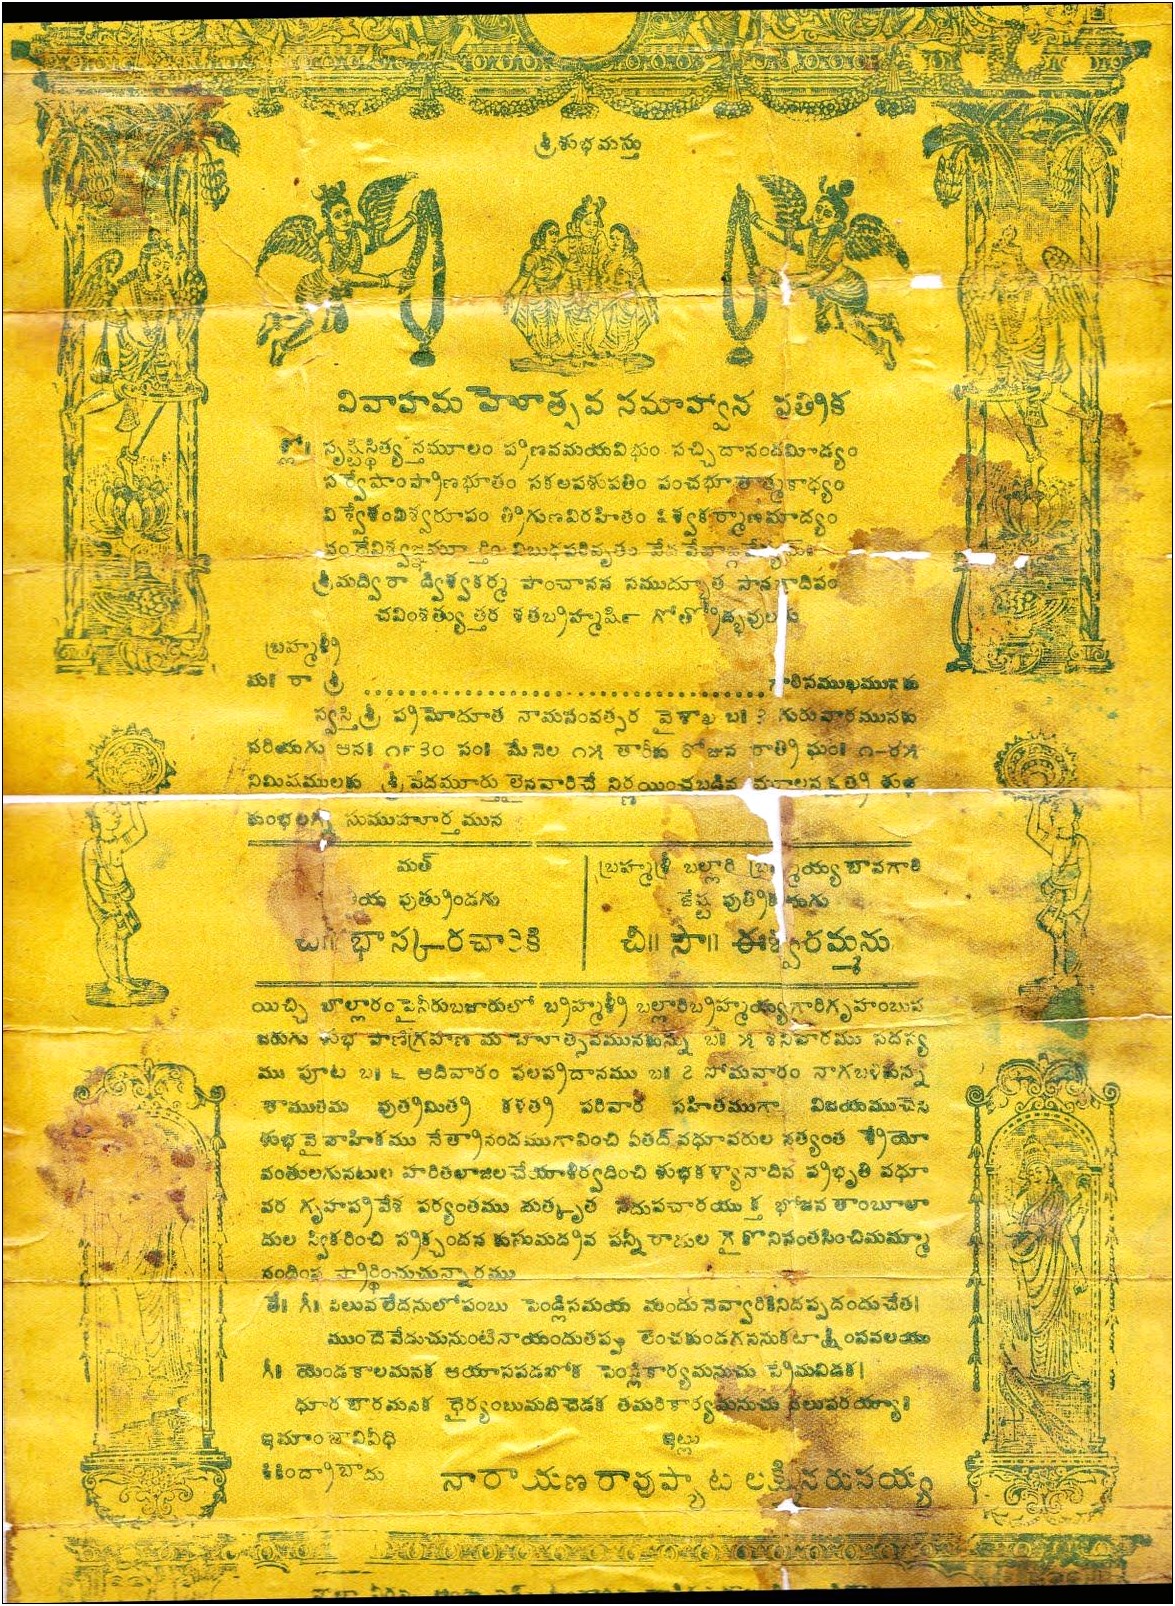 శ్రీశుభమస్తు
వివాహమహోత్సవ సమాహ్వాన పత్రిక
శ్లో॥ సృష్టిస్థిత్యన్తమూలం ప్రణవమయవిభుం సచ్చిదానందమీడ్యం
సర్వేషాంప్రాణభూతం సకలపశుపతిం పంచభూతాత్మకాధ్యం
విశ్వేశంవిశ్వరూపం త్రిగుణవిరహితం విశ్వకర్మాణమాద్యం
శ్రీమద్విరా డ్విశ్వకర్మ పాంచానన సముద్భూత సానగాదిపం
చవింశత్యుత్తర శతబ్రహ్మర్షి గోత్రోద్భవులకు
బ్రహ్మశ్రీ
మ॥ రా శ్రీ గారిసముఖమునకు
స్వస్తిశ్రీ ప్రమోదూత నామసంవత్సర వైశాఖ బ॥ ౩ గురువారమునకు
సరియగు అన॥ ౧౯౩౦ సం॥ మే నెల ౧౫ తారీఖు రోజున రాత్రి ఘం॥ ౧-౪౫
నిమిషములకు శ్రీ వేదమూర్తు లైనవారిచే నిర్ణయించబడిన శుభ
కుంభలగ్న సుముహూర్తమున
మత్
పుత్రుండగు
చి॥ భాస్కరచారికి
బ్రహ్మశ్రీ బల్లారి బ్రహ్మయ్య బావగారి
జేష్ట పుత్రిక యగు
చి॥ సౌ॥ ఈశ్వరమ్మను
యిచ్చి బొల్లారం పైనీరుబజారులో బ్రహ్మశ్రీ బల్లారిబ్రహ్మయ్యగారిగృహంబున
జరుగు శుభ పాణిగ్రహణ మహోత్సవమునకున్ను బ॥ ౫ శనివారము సదస్య
ము పూట బ॥ ౬ ఆదివారం ఫలప్రదానము బ॥ ౭ సోమవారం నాగబలికిన్ని
తాముతమ పుత్రమిత్ర కళత్ర పరివార సహితముగా విజయముచేసి
శుభవైవాహికము నేత్రానందముగావించి ఏతద్ వధూవరుల నత్యంత శ్రేయో
వంతులగునటుల హరితలాజలచే యాశీర్వదించి శుభకళ్యానాదిన ప్రభృతి వధూ
వర గృహప్రవేశ పర్యంతము మత్కృత సదుపచారయుక్త భోజన తాంబూలా
దుల స్వీకరించి స్రక్చందన కుసుమద్రవ పన్నీరాదుల గైకొనిసంతసించిమమ్మా
నందింప ప్రార్థించుచున్నారము
తే॥ గీ॥ పిలువలేదనులోపంబు పెండ్లిసమయ మందునెవ్వారికినిదప్పదందుచేత।
ముందెవేడుచునుంటినాయందుతప్పు లెంచకుండగననుకటాక్షింపవలయు
గీ॥ యెండకాలమనక ఆయాసపడబోక పెండ్లికార్యమనుచు ప్రేమవిడక।
ధూరభారమనక ధైర్యంబుమదిచెడక తమరికార్యమనుచు దలుపరయ్యా॥
ఇట్లు
నారాయణరావుప్యాట లక్ష్మీనరుసయ్య